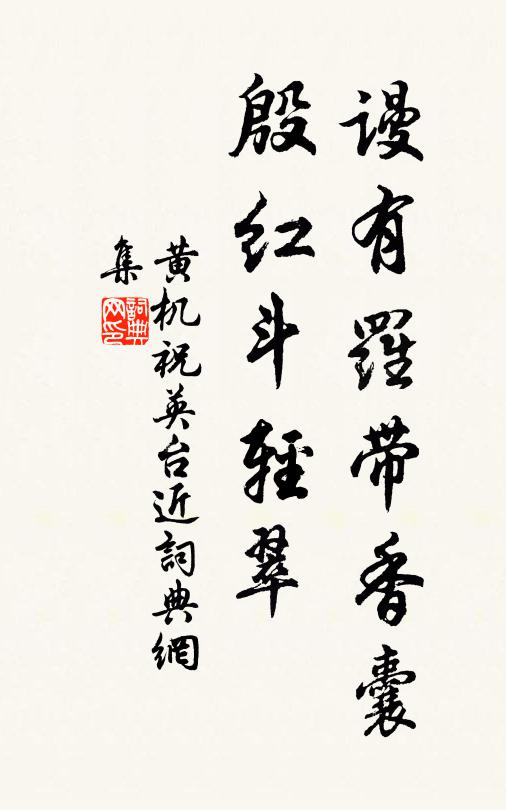 谩有羅带香囊
殷红斗輕翠
黄机祝英台近詞典網
集
詞典
网印